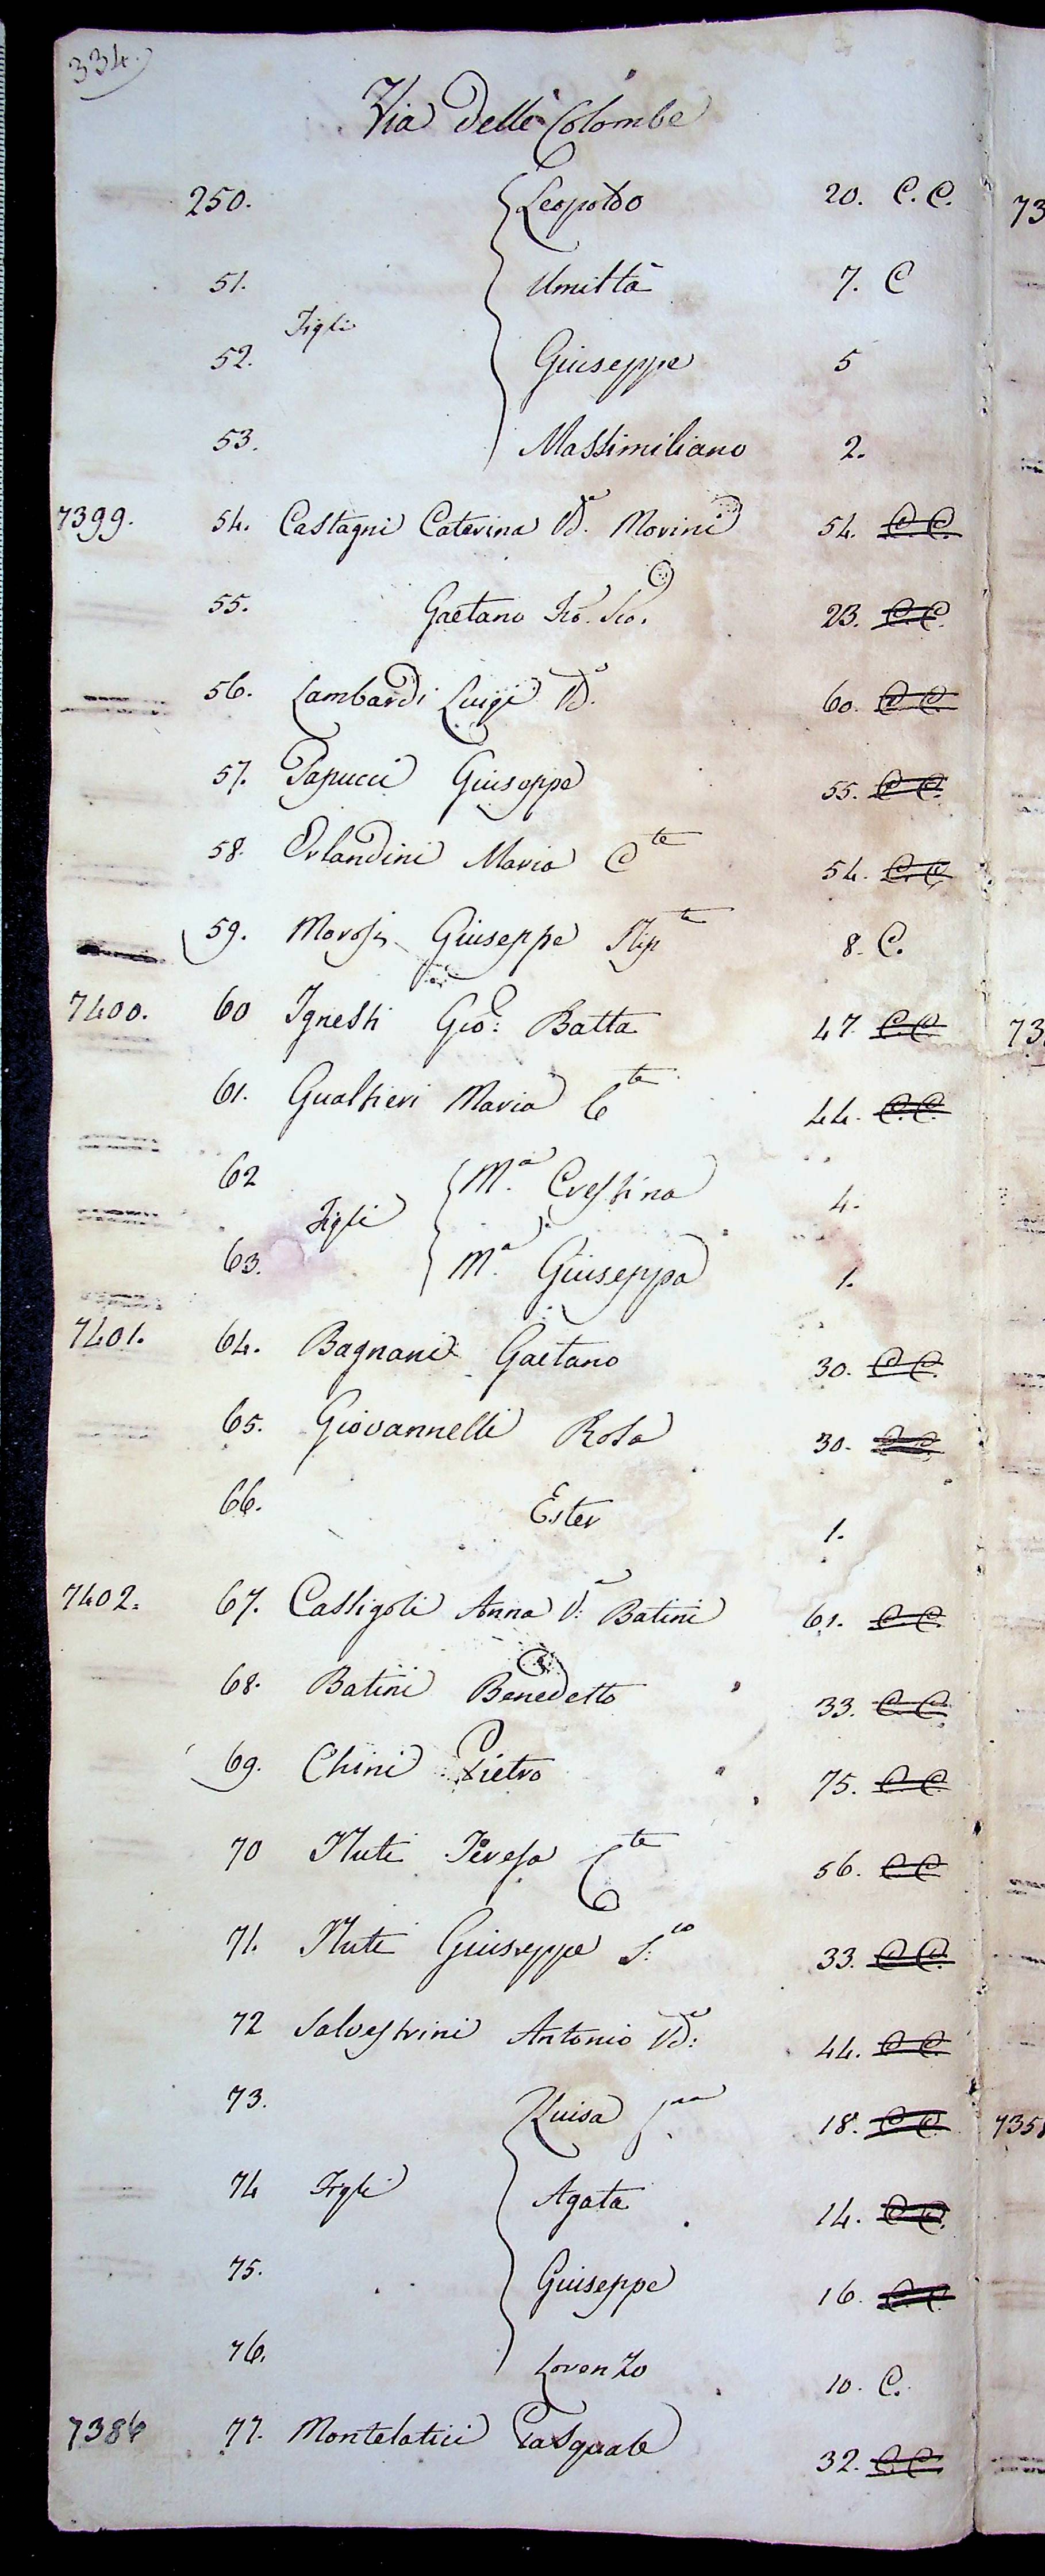 334.
Via delle Colombe
250. Leopoldo 20. C. C.
51. Umiltà 7. C
Figli
52. Giuseppe 5
53. Massimiliano 2.
7399. 54. Castagni Caterina Va. Morini 54. C. C.
55. Gaetano 23. C. C.
56. Lambardi Luigi Vo. 60. C. C.
57. Papucci Giuseppe 55. C. C.
58. Orlandini Maria Cte 54. C. C.
59. Morosi Giuseppe Nipte 8. C.
7400. 60 Ignesti Gio: Batta 47 C. C.
61. Gualtieri Maria Cte 44. C. C.
62 Ma. Crestina 4.
Figli
63. Ma. Giuseppa 1.
7401. 64. Bagnani Gaetano 30. C. C.
65. Giovannelli Rosa 30. C. C.
66. Ester 1.
7402. 67. Cassigoli Anna Va: Batini 61. C. C.
68. Batini Benedetto 33. C. C.
69. Chini Pietro 75. C. C.
70 Nuti Teresa Cte 56. C C
71. Nuti Giuseppe S:co 33. C C.
72 Salvestrini Antonio Vo: 44. C C.
73. Luisa 18. C C.
74 Figli Agata 14. C C.
75. Giuseppe 16. C. C.
76. Lorenzo 10. C.
7386 77. Montelatici Pasquale 32. C. C.
73
73
735